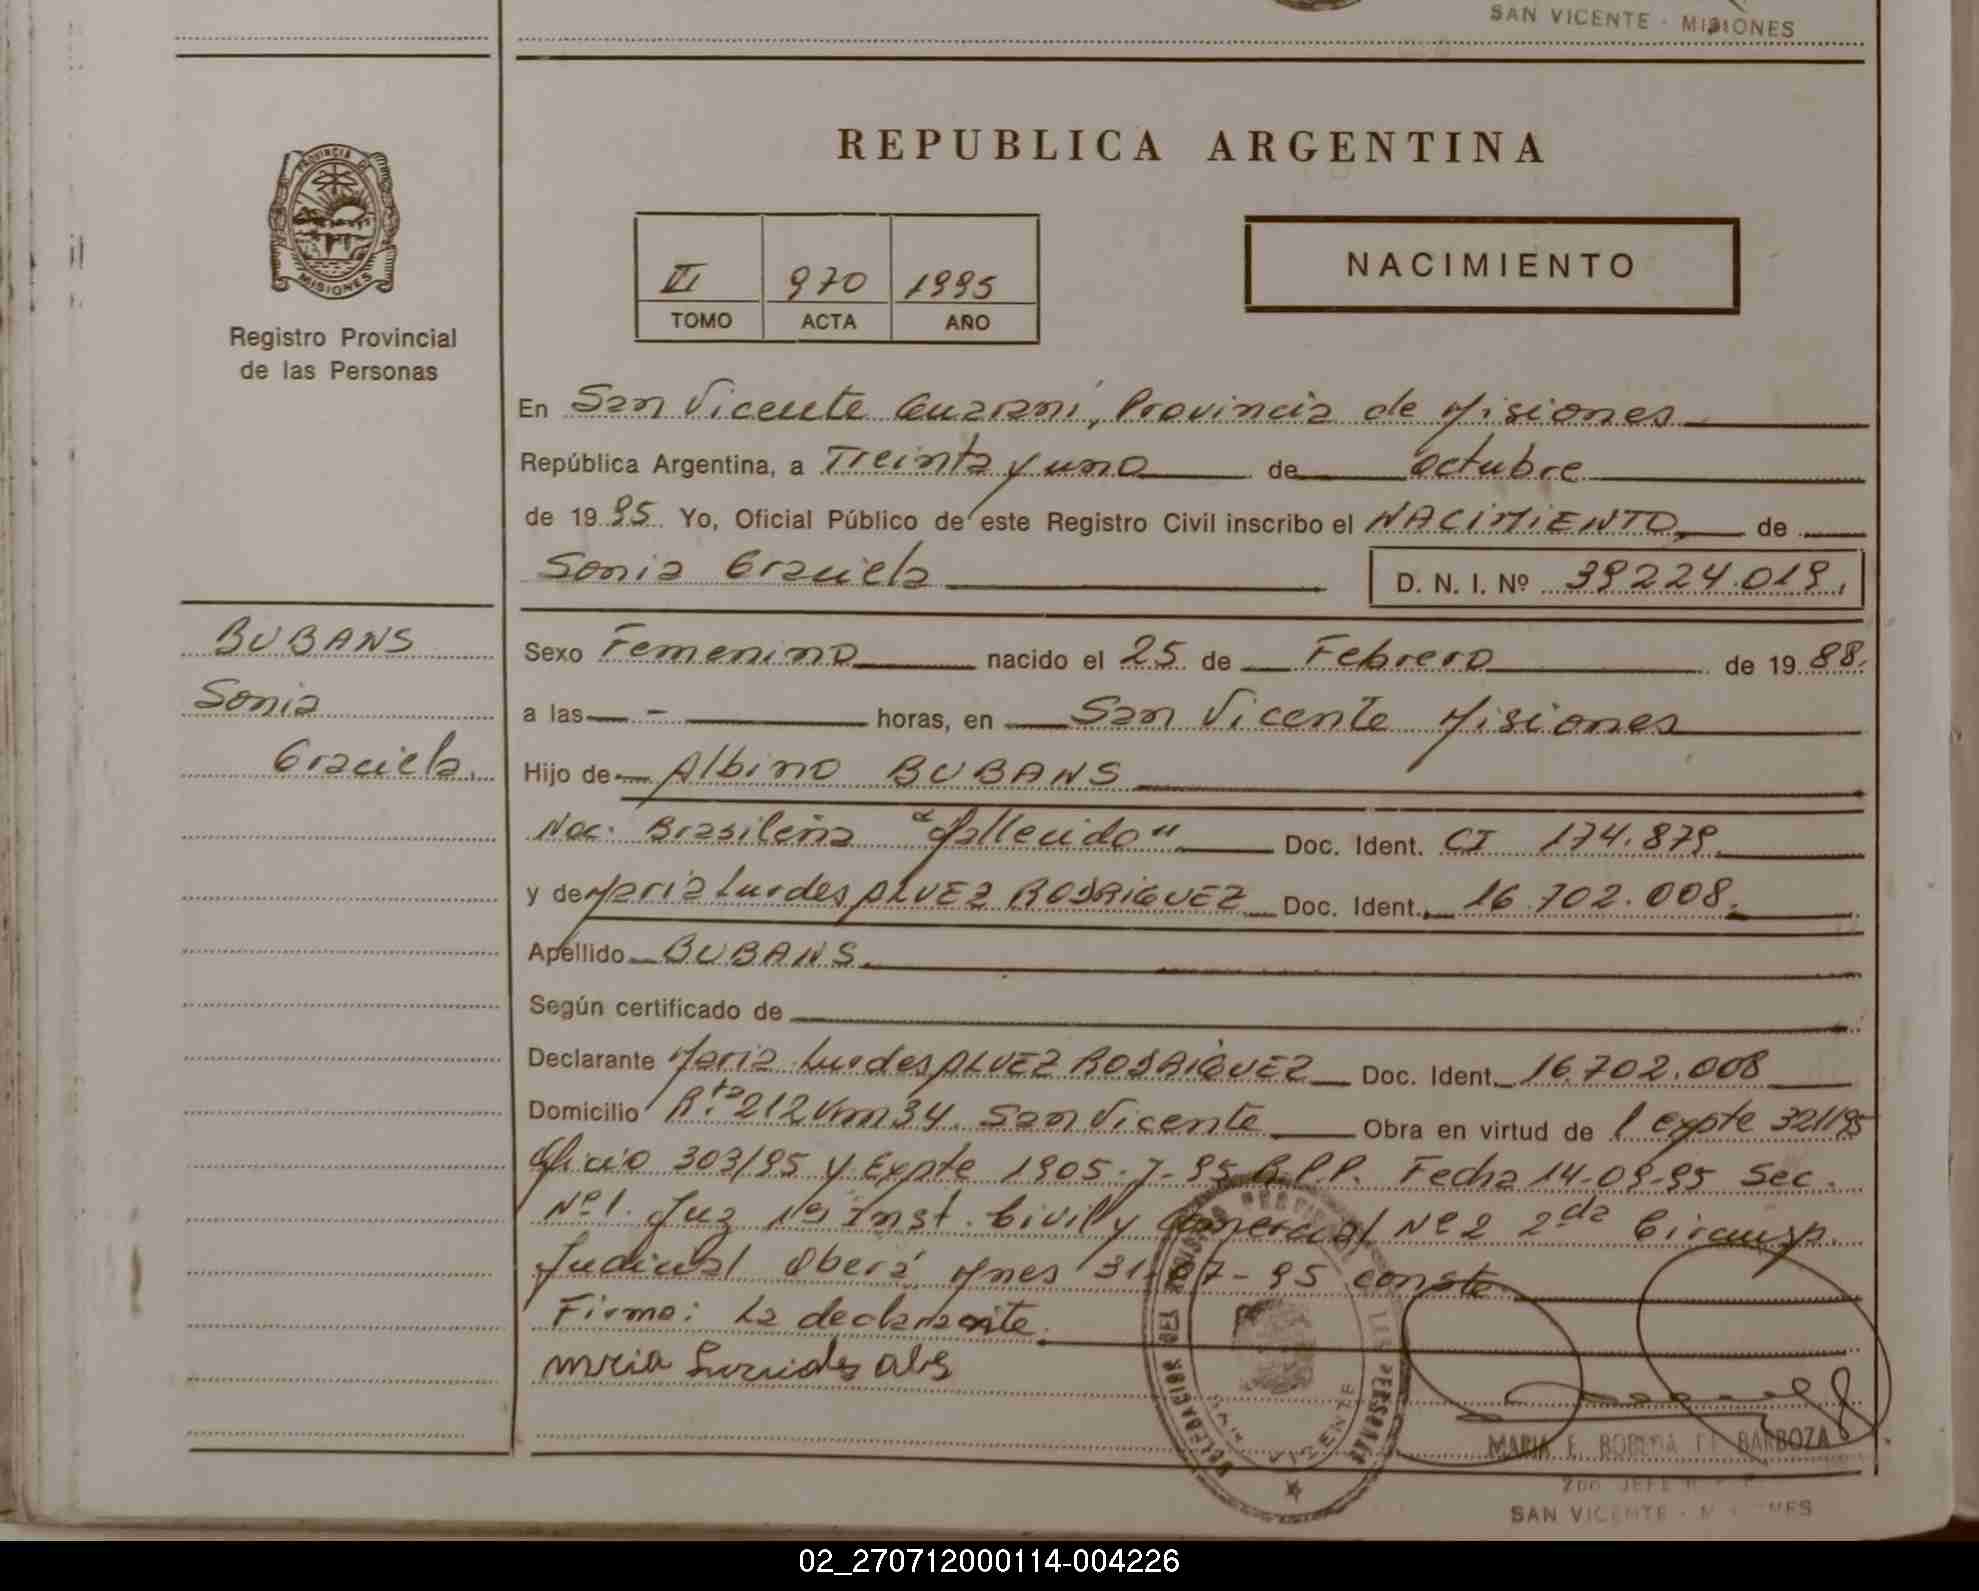 SAN VICENTE - MISIONES
REPUBLICA ARGENTINA
PROVINCIA DE
MISIONES
Registro Provincial
de las Personas
III 970 1995
TOMO ACTA AÑO
NACIMIENTO
En San Vicente Guaraní, Provincia de Misiones
República Argentina, a Treinta y uno de octubre
de 1995. Yo, Oficial Público de este Registro Civil inscribo el NACIMIENTO de
Sonia Graciela D. N. I. Nº 39224.019.
BUBANS
Sonia
Graciela.
Sexo Femenino nacido el 25 de Febrero de 1988.
a las - horas, en San Vicente Misiones
Hijo de Albino BUBANS
Nac: Brasileña "fallecido" Doc. Ident. CI 174.879
y de Maria Lurdes ALVEZ RODRIGUEZ Doc. Ident. 16.702.008.
Apellido BUBANS
Según certificado de
Declarante Maria Lurdes ALVEZ RODRIGUEZ Doc. Ident. 16.702.008
Domicilio R.ta 212 Km 34. San Vicente Obra en virtud de l expte 321/95
Oficio 303/95 y Expte 1905-7-95 R.P.P. Fecha 14-09-95 Sec.
Nº 1. Juz 1ra Inst. Civil y Comercial Nº 2 2da Circunsp.
Judicial Oberá Mnes 31-07-95 conste
Firma: La declarante.
DELEGACION DEL REGISTRO PROVINCIAL DE LAS PERSONAS
SAN VICENTE
MARIA E. DE BARBOZA
2DO JEFE
SAN VICENTE - MISIONES
02_270712000114-004226